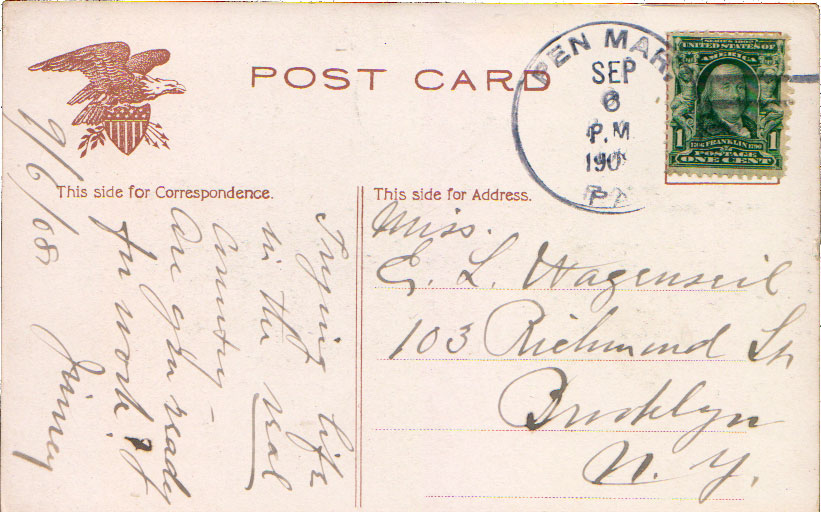 POST CARD
PEN MAR
SEP
6
P.M.
190
PA
SERIES 1902
UNITED STATES OF
AMERICA
1 1
FRANKLIN
POSTAGE
ONE CENT
This side for Correspondence.
This side for Address.
9/6/08
Trying life
in the real
country -
Are you ready
for work?
Miss.
E. L. Wagenseil
103 Richmond St
Brooklyn
N. Y.